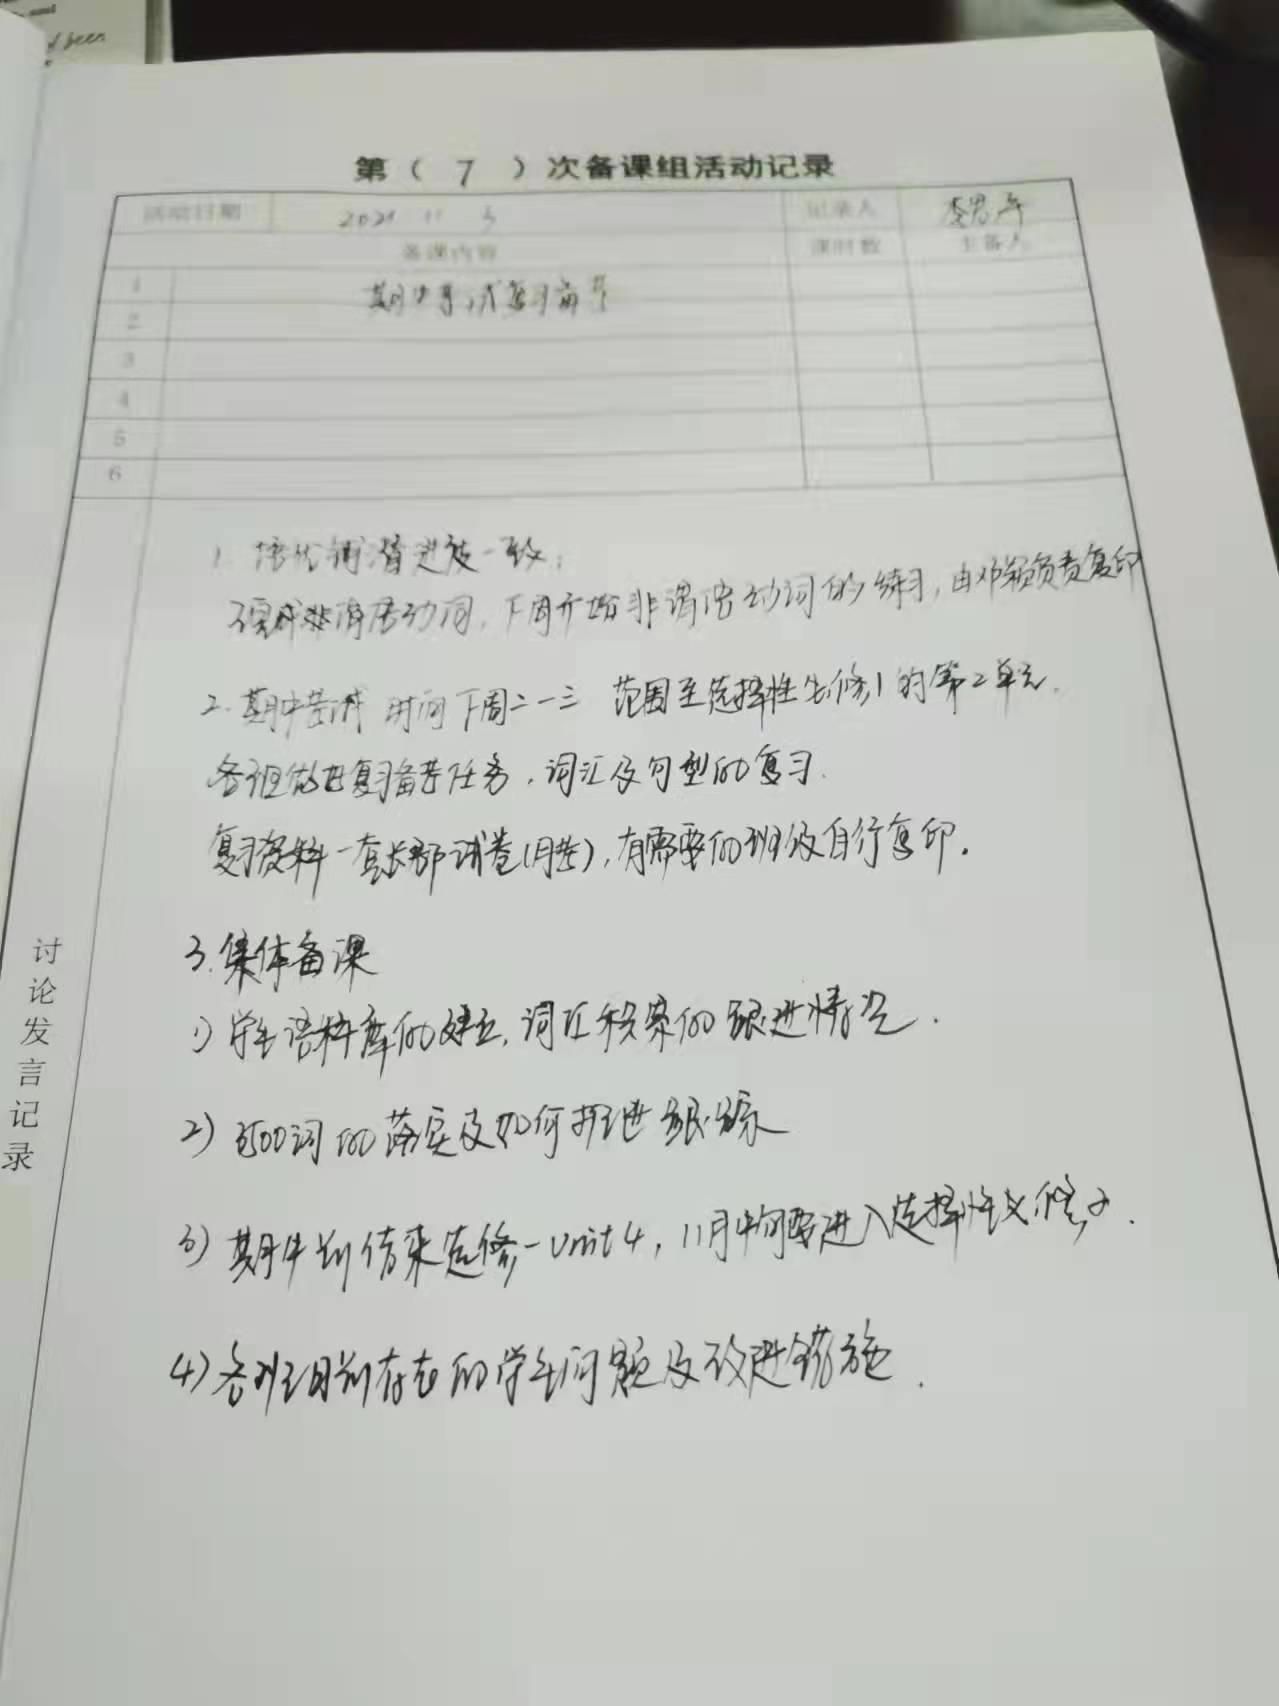 been
第（ 7 ）次备课组活动记录
活动日期 2021 11 3 记录人
备课内容 课时数 主备人
1 期中考试复习备考
2
3
4
5
6
1. 培优辅潜进度一致：
非谓语动词，下周开始非谓语动词的练习，由邓颖负责复印
2. 期中考试 时间下周二一三 范围至选择性必修1的第2单元.
各班做好复习备考任务，词汇及句型的复习.
复习资料一套长郡试卷(月考)，有需要的班级自行复印.
3. 集体备课
1) 学生语料库的建立, 词汇积累的跟进情况.
2) 3500词的落实及如何推进跟踪
3) 期中前结束选修一Unit 4, 11月中旬要进入选择性必修2.
4) 各班目前存在的学生问题及改进措施.
讨论发言记录